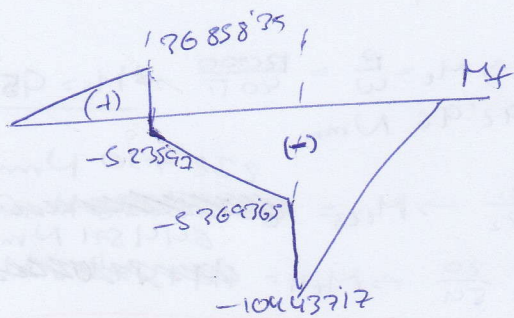 36858'35
Mf
(+)
(+)
-523597
-5369365
-10443717